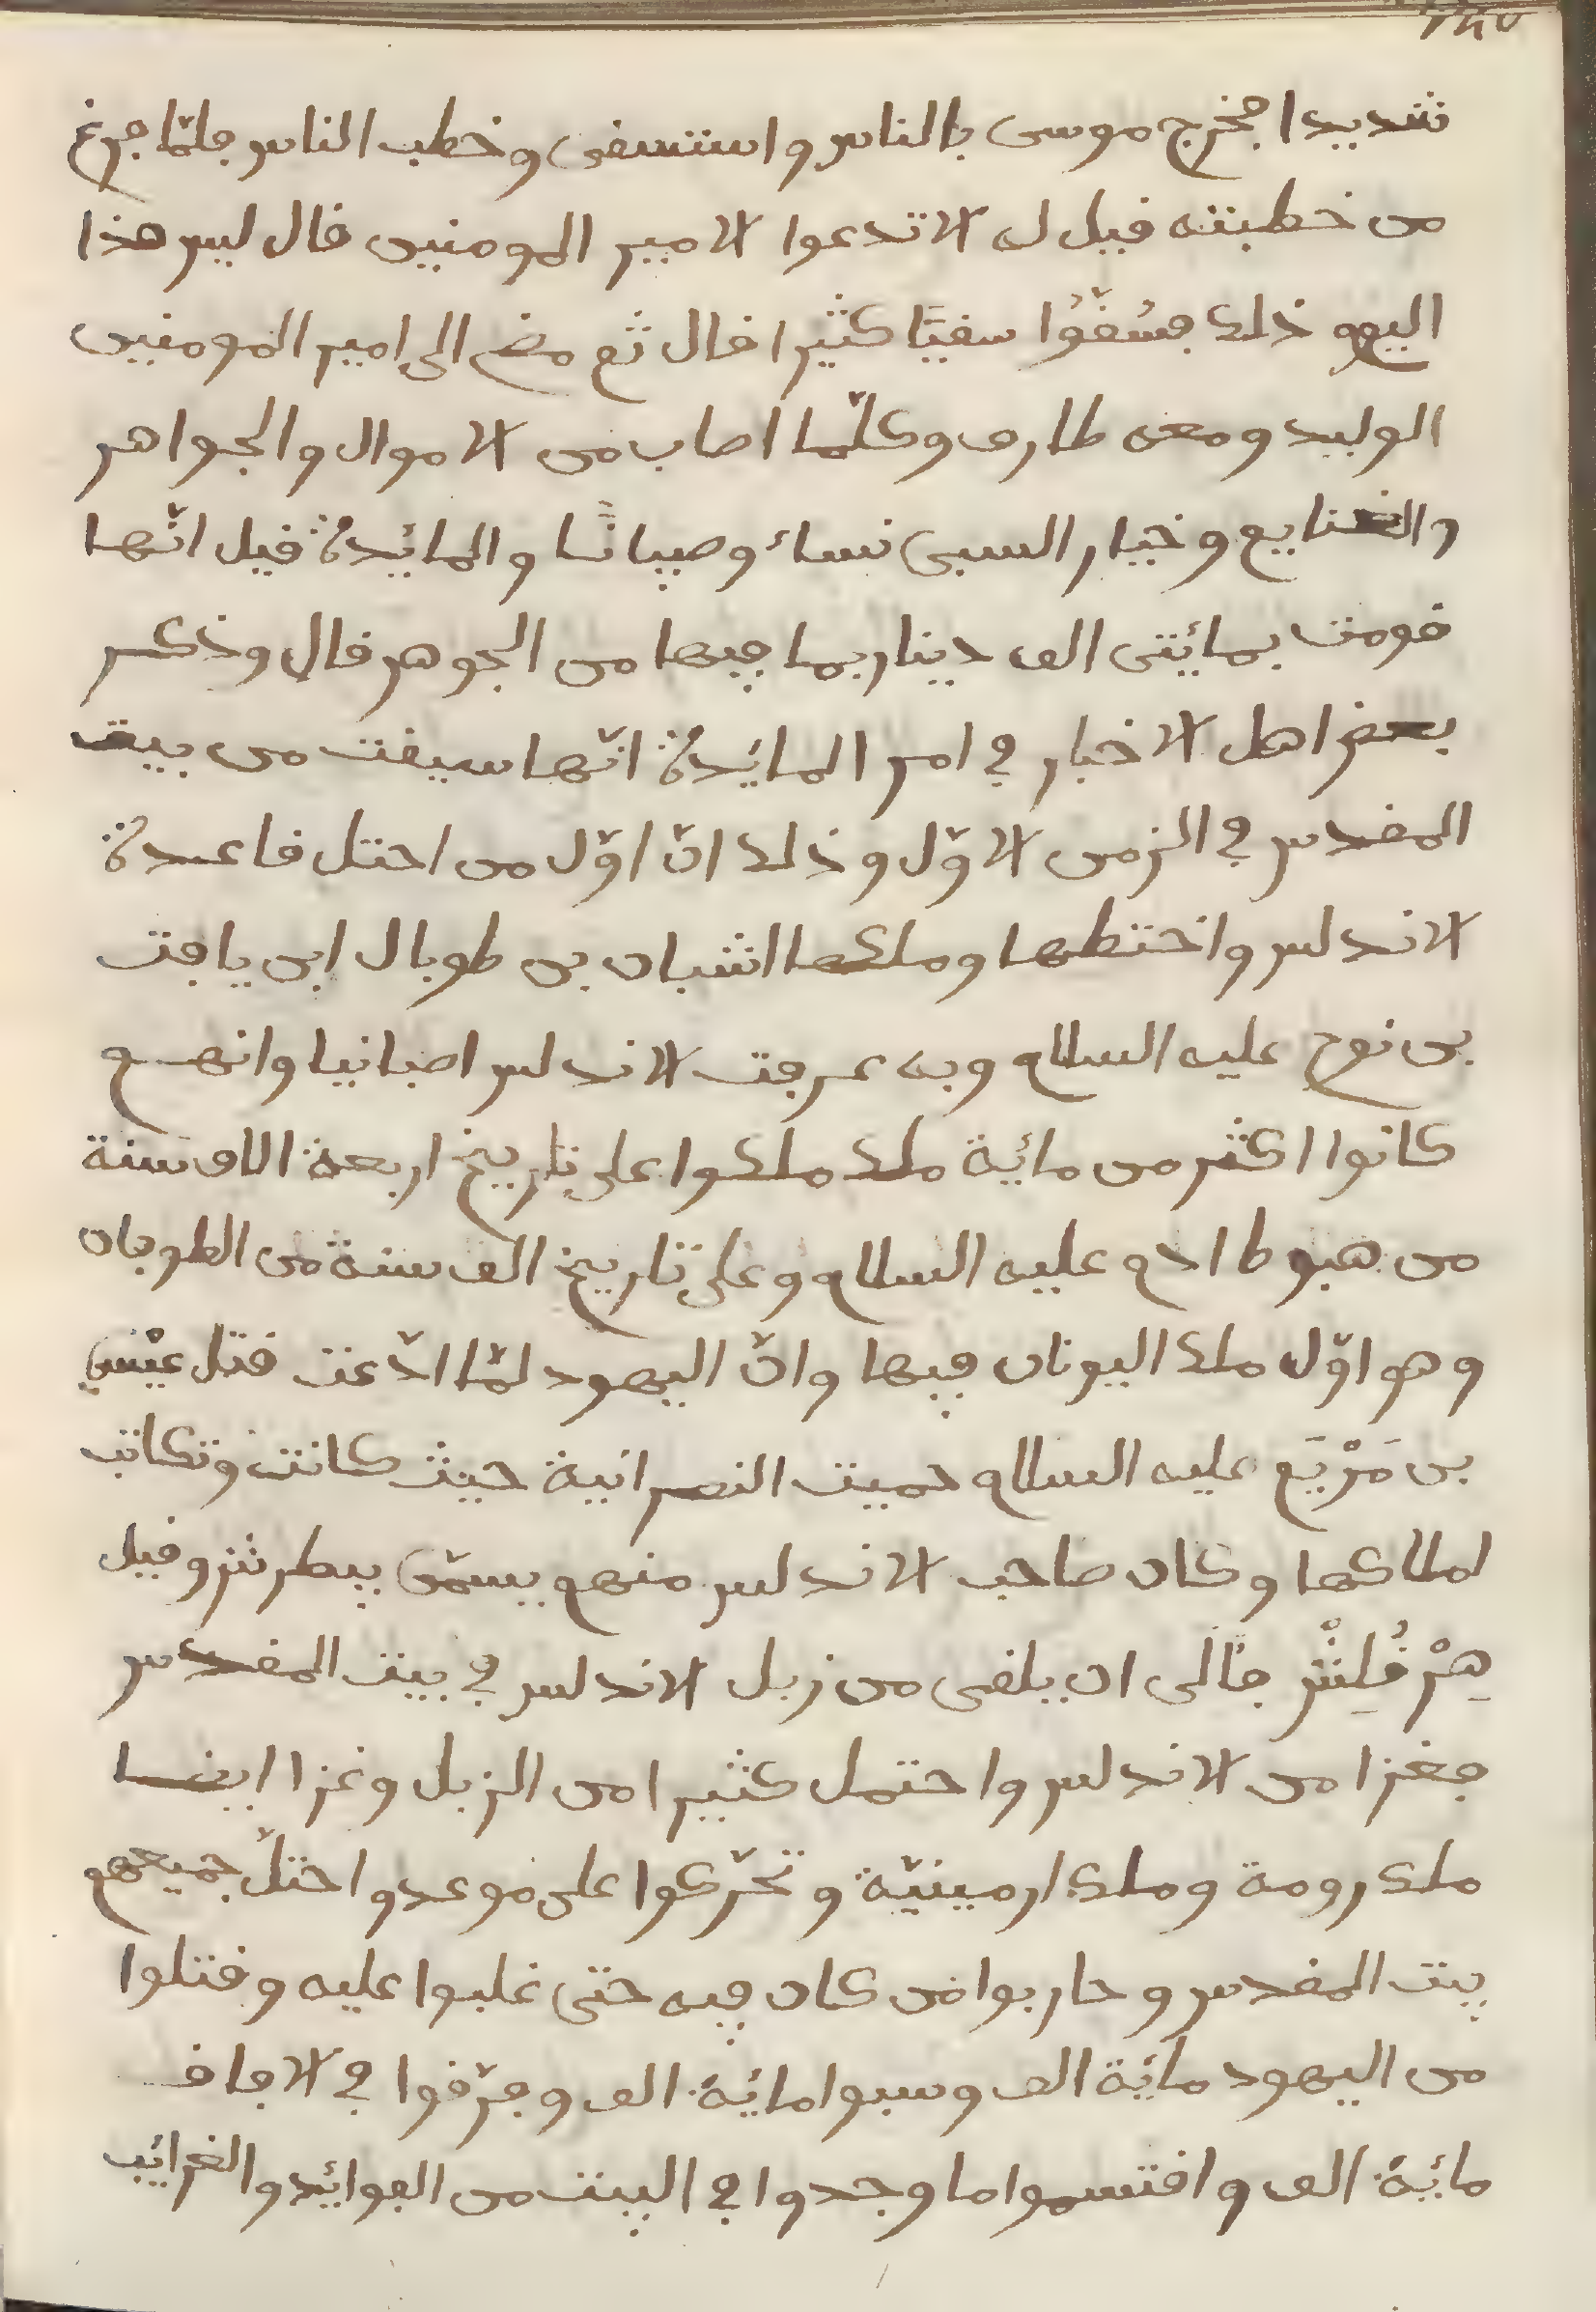 شديدا فخرج موسى بالناس واستسقى وخطب الناس فلمّا فرغ
من خطبته قيل له الا تدعوا لامير المومنين قال ليس هذا
اليوم ذلك فسُقُوْا سقيًا كثيرا قال ثم مضى الى امير المومنين
الوليد ومعه طارق وكلّما اصاب من الاموال والجواهر
وخيار السبى نساء وصبيانًا والمائيدة قيل انّها
قومت بمائيتى الف دينار بما فيها من الجوهر قال وذكر
بعض اهل الاخبار في امر المائيدة انّها سيقت من بيت
المقدس في الزمن الاوّل وذلك انّ اوّل من احتل قاعدة
الاندلس واختطها وملكها اشبان بن طوبال ابن يافت
بن نوح عليه السلام وبه عرفت الاندلس اصبانيا وانهم
كانوا اكثر من مائية ملك ملكوا على تاريخ اربعة الاف سنة
من هبوط ادم عليه السلام وعلى تاريخ الف سنة من الطوفان
وهو اوّل ملك اليونان فيها وانّ اليهود لمّا ادّعت قتل عيْسى
بن مَرْيَم عليه السلام حميت النصرانية حيث كانت وتكاتب
املاكها وكان صاحب الاندلس منهم يسمّى بيطرشر وقيل
هِرْقُلِشْر فألى ان يلقى من زبل الاندلس في بيت المقدس
فغزا من الاندلس واحتمل كثيرا من الزبل وغزا ايضا
ملك رومة وملك ارمينيّة وتحرّكوا على موعد واحتلّ جميعهم
بيت المقدس وحاربوا من كان فيه حتى غلبوا عليه وقتلوا
من اليهود مائية الف وسبوا مائية الف وفرّقوا في الافاق
مائية الف واقتسموا ما وجدوا في البيت من الفوائيد والغرائيب